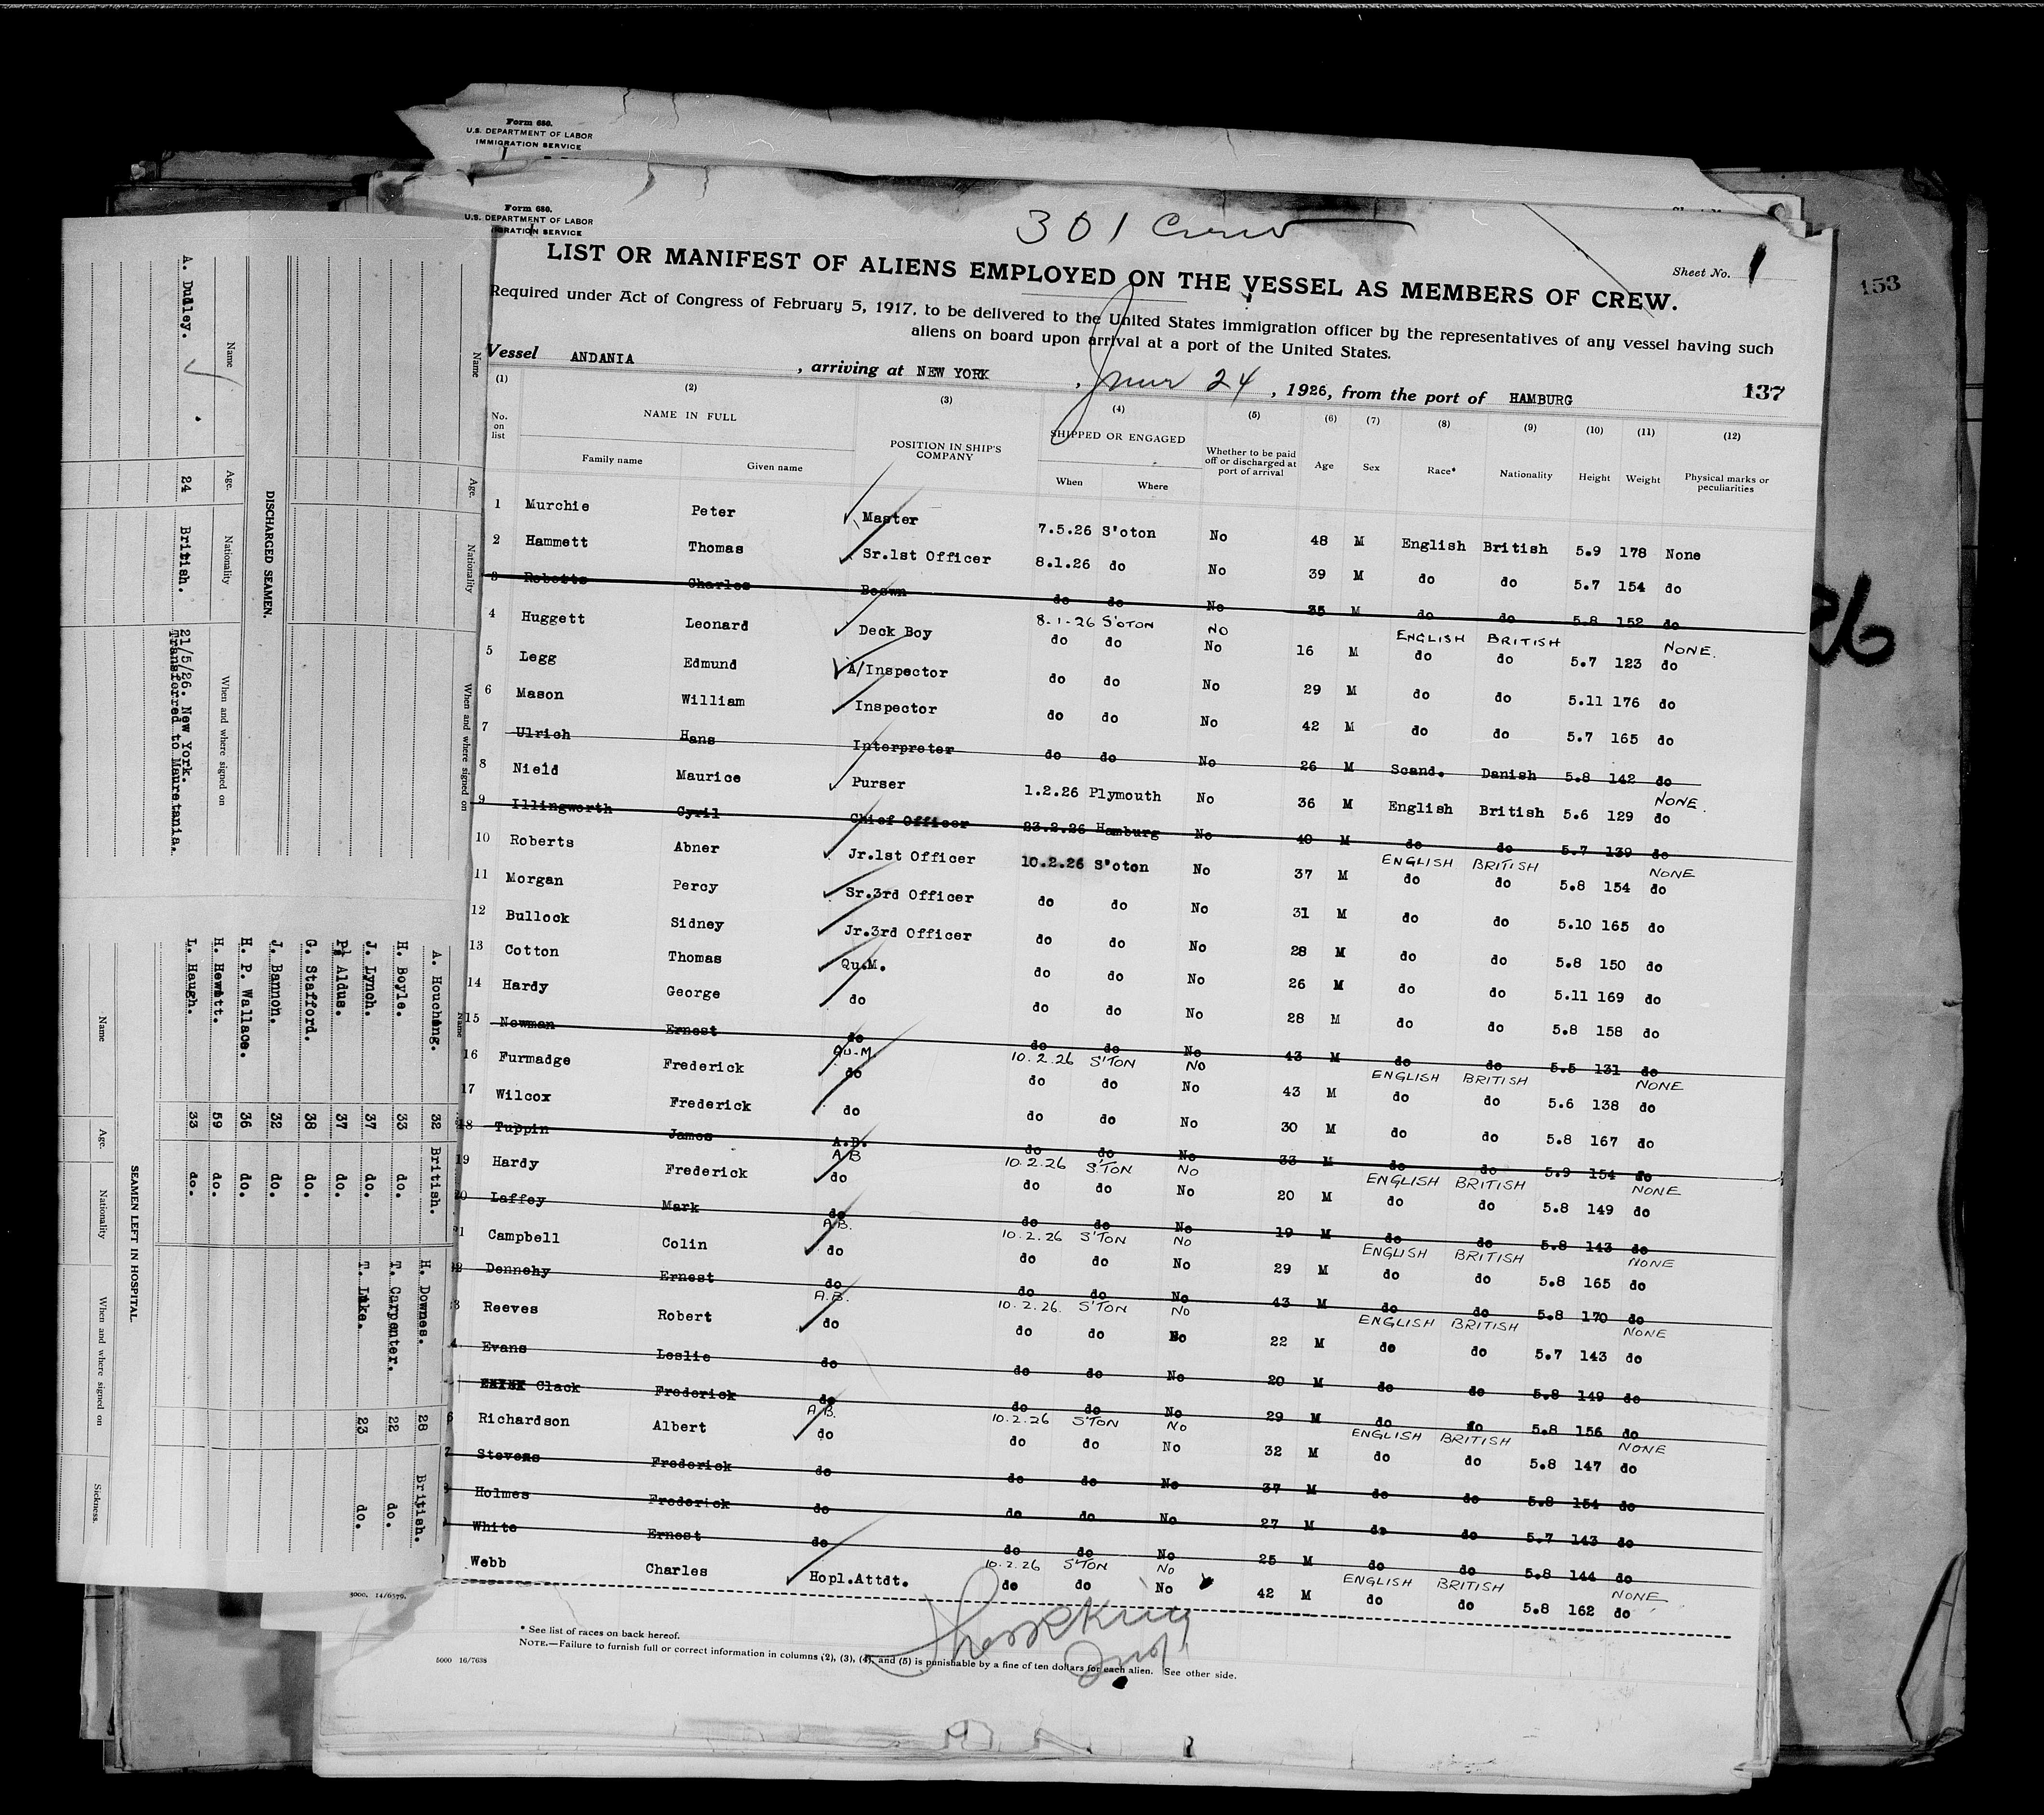 Form 680.
U.S. DEPARTMENT OF LABOR
IMMIGRATION SERVICE
Form 680.
U.S. DEPARTMENT OF LABOR
IGRATION SERVICE
301 Crew
Sheet No. 1
LIST OR MANIFEST OF ALIENS EMPLOYED ON THE VESSEL AS MEMBERS OF CREW.
Required under Act of Congress of February 5, 1917, to be delivered to the United States immigration officer by the representatives of any vessel having such
aliens on board upon arrival at a port of the United States.
Vessel ANDANIA, arriving at NEW YORK, June 24, 1926, from the port of HAMBURG
137
(1) (2) (3) (4) (5) (6) (7) (8) (9) (10) (11) (12)
No. on list NAME IN FULL POSITION IN SHIP'S COMPANY SHIPPED OR ENGAGED Whether to be paid off or discharged at port of arrival Age Sex Race* Nationality Height Weight Physical marks or peculiarities
Family name Given name When Where
1 Murchie Peter Master 7.5.26 S'oton No 48 M English British 5.9 178 None
2 Hammett Thomas Sr.1st Officer 8.1.26 do No 39 M do do 5.7 154 do
3 Roberts Charles Boswn do do No 35 M do do 5.8 152 do
8-1-26 S'OTON NO ENGLISH BRITISH NONE.
4 Huggett Leonard Deck Boy do do No 16 M do do 5.7 123 do
5 Legg Edmund A/Inspector do do No 29 M do do 5.11 176 do
6 Mason William Inspector do do No 42 M do do 5.7 165 do
7 Ulrich Hans Interpreter do do No 26 M Scand. Danish 5.8 142 do
NONE.
8 Nield Maurice Purser 1.2.26 Plymouth No 36 M English British 5.6 129 do
9 Illingworth Cyril Chief Officer 23.2.26 Hamburg No 40 M do do 5.7 139 do
ENGLISH BRITISH NONE
10 Roberts Abner Jr.1st Officer 10.2.26 S'oton No 37 M do do 5.8 154 do
11 Morgan Percy Sr.3rd Officer do do No 31 M do do 5.10 165 do
12 Bullock Sidney Jr.3rd Officer do do No 28 M do do 5.8 150 do
13 Cotton Thomas Qu.M. do do No 26 M do do 5.11 169 do
14 Hardy George do do do No 28 M do do 5.8 158 do
15 Newman Ernest do do do No 43 M do do 5.5 131 do
QU-M. 10.2.26 S'TON NO ENGLISH BRITISH NONE
16 Furmadge Frederick do do do No 43 M do do 5.6 138 do
17 Wilcox Frederick do do do No 30 M do do 5.8 167 do
18 Tuppin James A.B. do do No 33 M do do 5.9 154 do
AB 10.2.26 S'TON NO ENGLISH BRITISH NONE
19 Hardy Frederick do do do No 20 M do do 5.8 149 do
20 Laffey Mark do do do No 19 M do do 5.8 143 do
A.B. 10.2.26 S'TON NO ENGLISH BRITISH NONE
1 Campbell Colin do do do No 29 M do do 5.8 165 do
Dennehy Ernest do do do No 43 M do do 5.8 170 do
A.B. 10.2.26. S'TON NO ENGLISH BRITISH NONE
3 Reeves Robert do do do No 22 M do do 5.7 143 do
4 Evans Leslie do do do No 20 M do do 5.8 149 do
Clack Frederick do do do No 29 M do do 5.8 156 do
A.B. 10.2.26 S'TON NO ENGLISH BRITISH NONE
6 Richardson Albert do do do No 32 M do do 5.8 147 do
7 Stevens Frederick do do do No 37 M do do 5.8 154 do
Holmes Frederick do do do No 27 M do do 5.7 143 do
White Ernest do do do No 25 M do do 5.8 144 do
10.2.26 S'TON NO ENGLISH BRITISH NONE
Webb Charles Hopl.Attdt. do do No 42 M do do 5.8 162 do
* See list of races on back hereof.
NOTE.—Failure to furnish full or correct information in columns (2), (3), (4), and (5) is punishable by a fine of ten dollars for each alien. See other side.
5000 16/7638
3000. 14/6579.
153
26
Name Age. Nationality When and where signed on
DISCHARGED SEAMEN.
Name Age. Nationality When and where signed on
A. Dudley. 24 British. 21/5/26. New York.
Transferred to Mauretania.
Name
A. Houching. 32 British.
H. Boyle. 33 do.
J. Lynch. 37 do.
Aldus. 37 do.
G. Stafford. 38 do.
J. Bannon. 32 do.
H. P. Wallace. 36 do.
H. Hewitt. 59 do.
L. Haugh. 33 do.
H. Downes. 28 British.
T. Carpenter. 22 do.
T. Luke. 23 do.
SEAMEN LEFT IN HOSPITAL.
Name Age. Nationality When and where signed on Sickness.